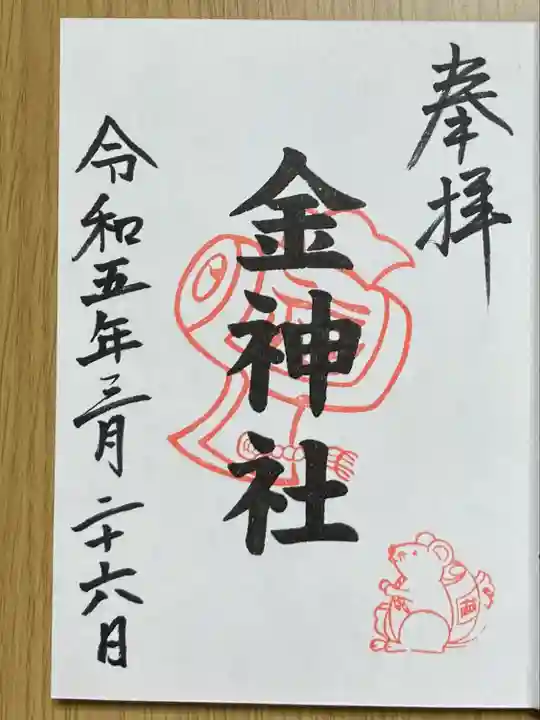 奉拝
金神社
令和五年三月二十六日